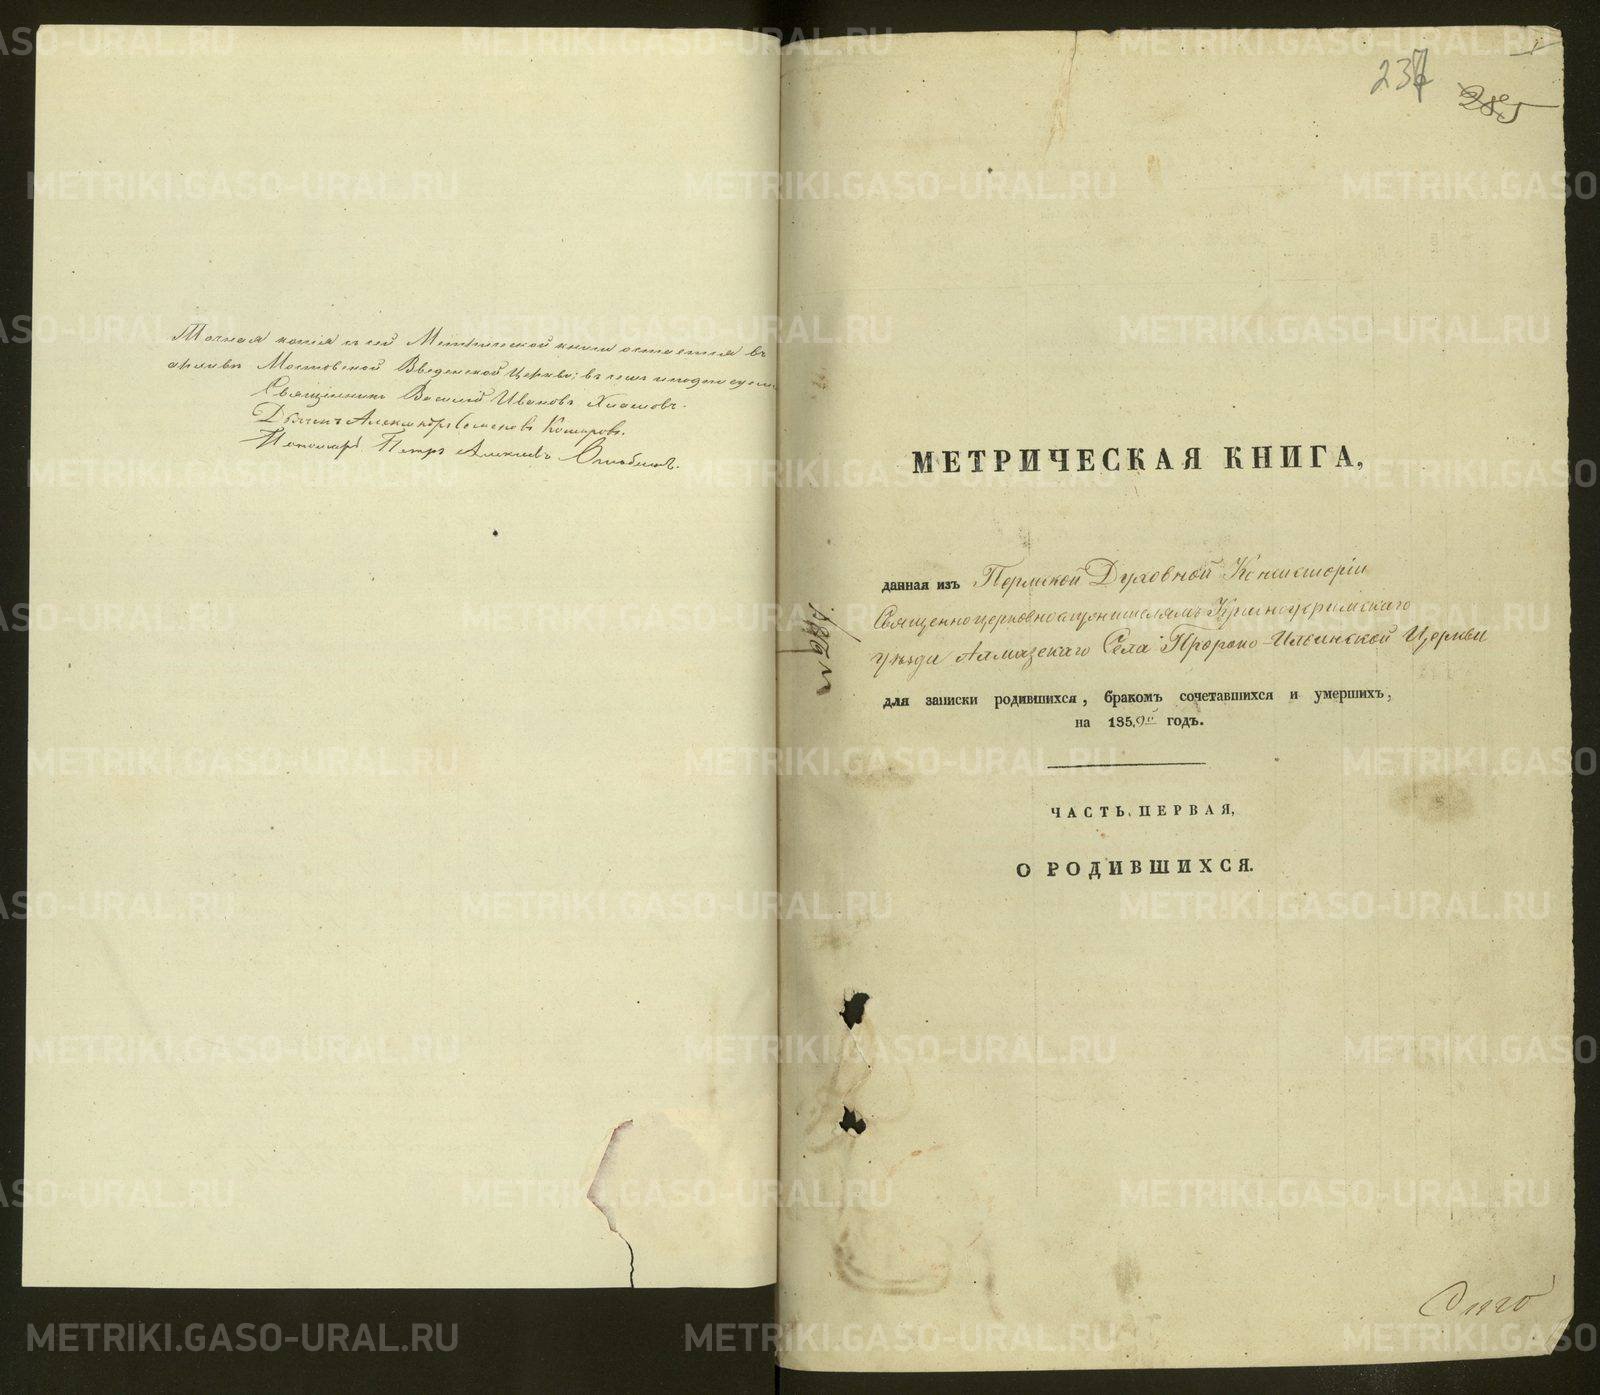 Точная копія съ сей Метрической книги остается въ
архивѣ Мостовской Введенской Церкви; въ томъ и подписуемся
Священникъ Василій Ивановъ
Дьячекъ Александръ Семеновъ
Пономарь Петръ Алексѣевъ
237
285
МЕТРИЧЕСКАЯ КНИГА,
данная изъ Пермской Духовной Консисторіи
Священноцерковнослужителямъ Красноуфимскаго
уѣзда Алмазскаго Села Пророко-Ильинской Церкви
для записки родившихся, бракомъ сочетавшихся и умершихъ,
на 1859й годъ.
ЧАСТЬ ПЕРВАЯ,
О РОДИВШИХСЯ.
METRIKI.GASO-URAL.RU